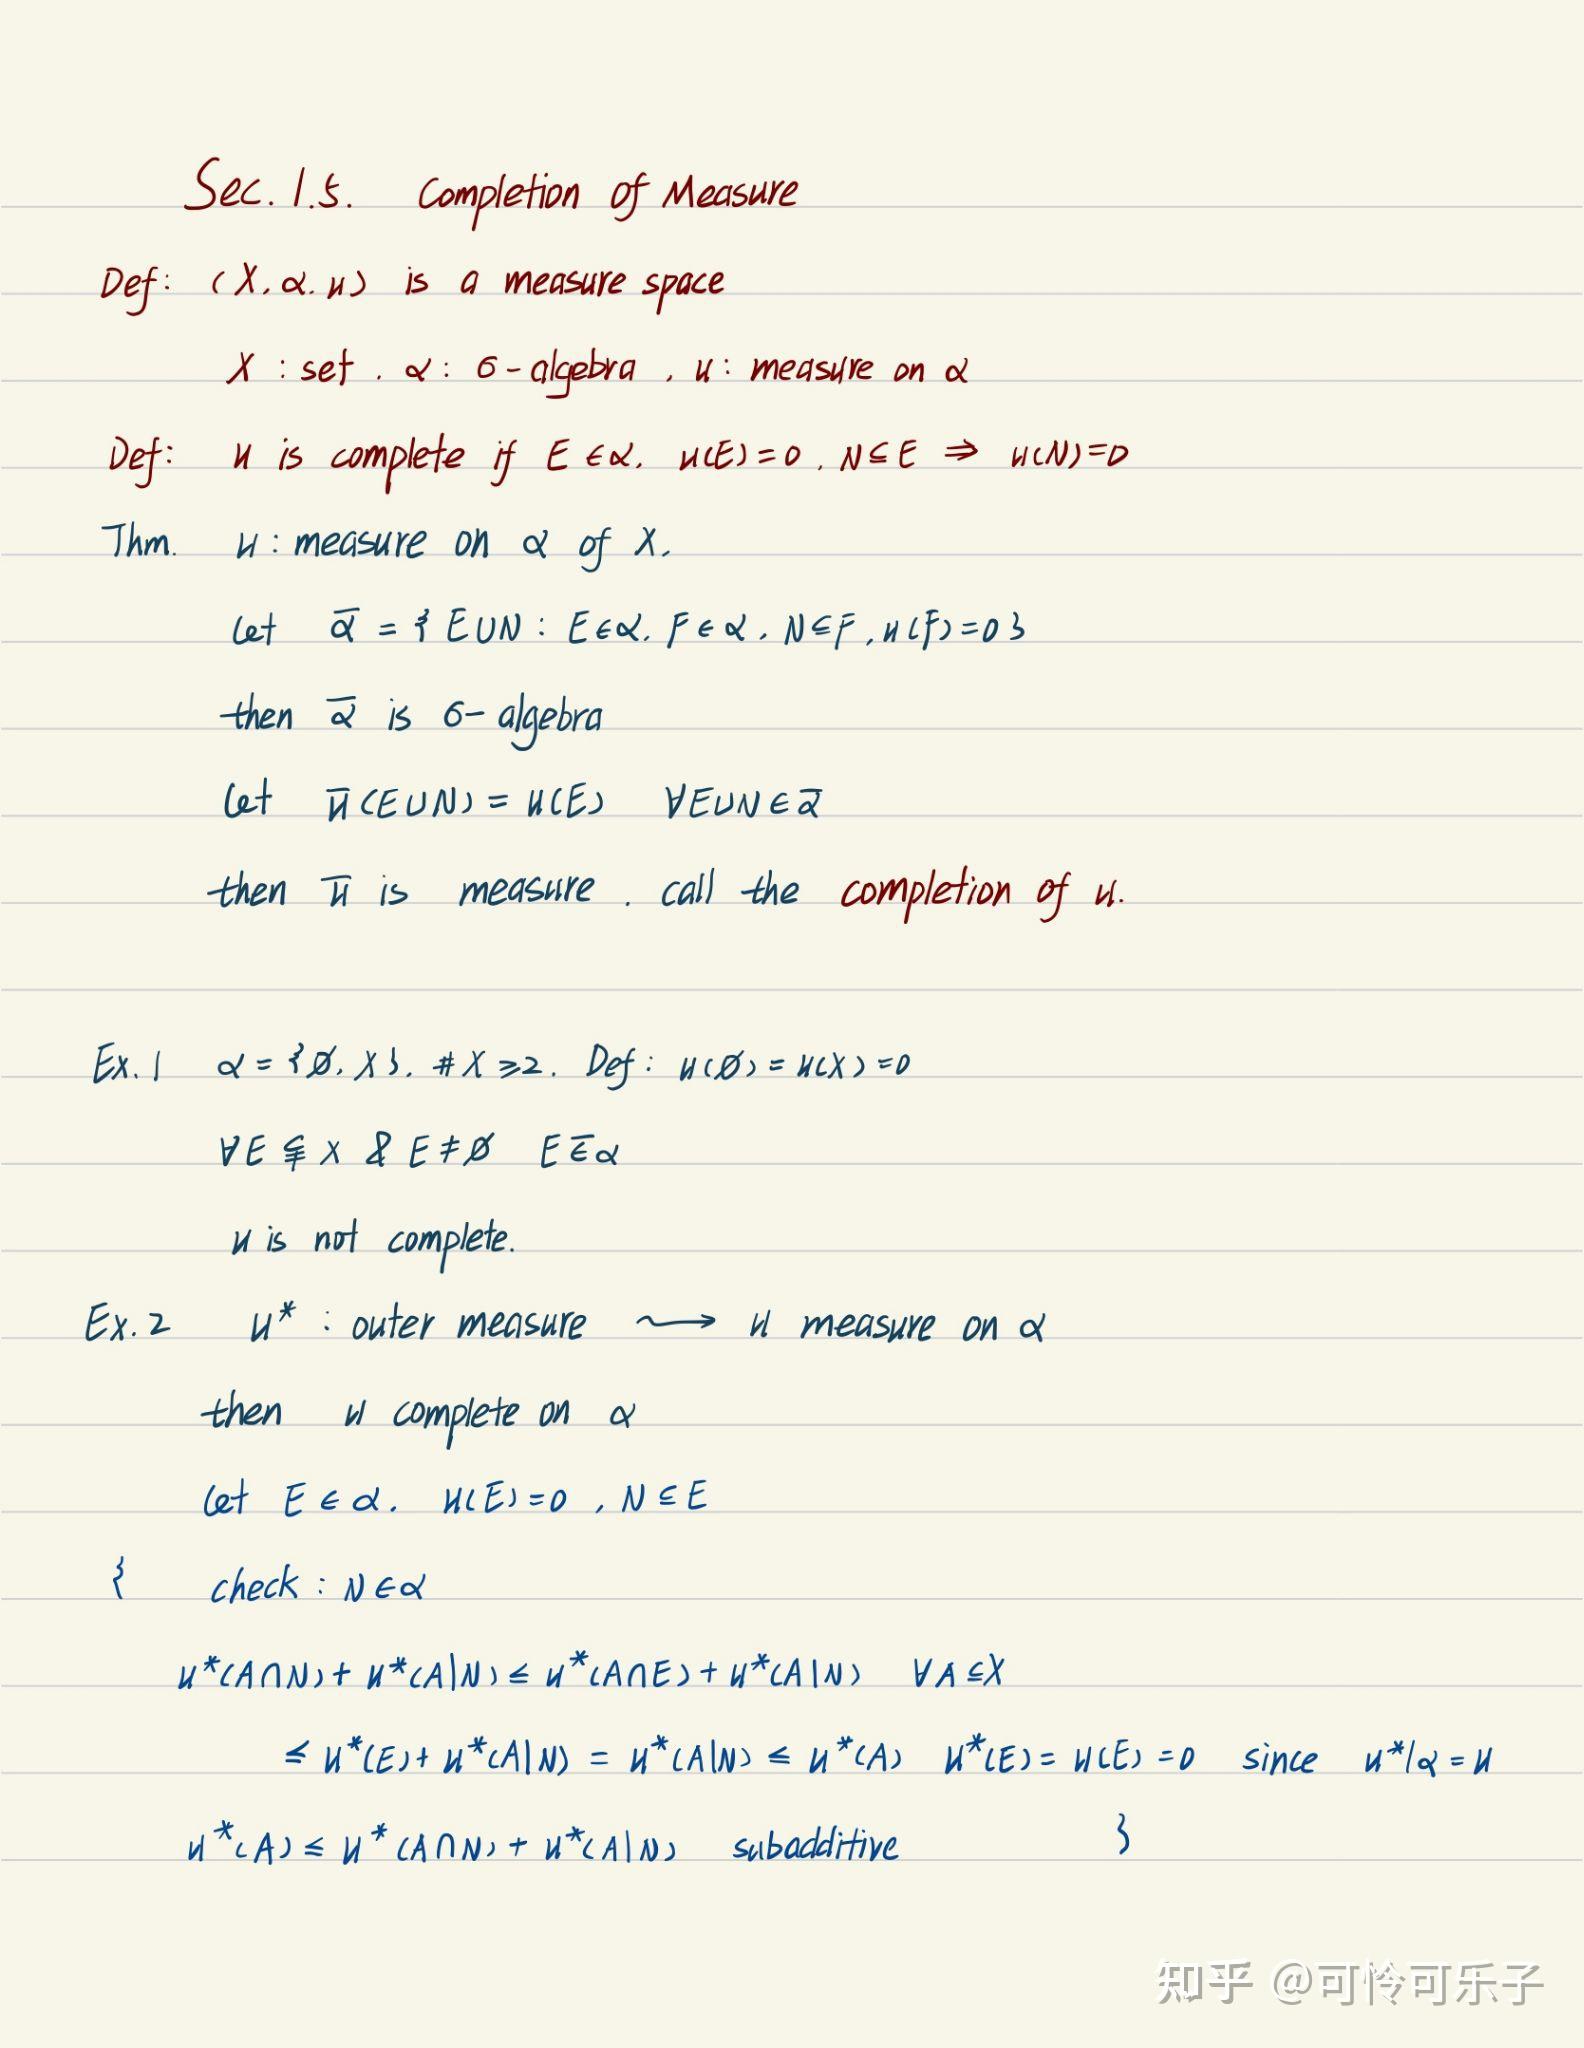 Sec. 1.5. Completion of Measure
Def: (X, α, μ) is a measure space
X : set, α : σ-algebra, μ : measure on α
Def: μ is complete if E ∈ α, μ(E) = 0, N ⊆ E ⇒ μ(N) = 0
Thm. μ : measure on α of X,
Let ᾱ = { E ∪ N : E ∈ α, F ∈ α, N ⊆ F, μ(F) = 0 }
then ᾱ is σ-algebra
Let μ̄(E ∪ N) = μ(E) ∀ E ∪ N ∈ ᾱ
then μ̄ is measure. call the completion of μ.
Ex. 1 α = {∅, X}, #X ≥ 2. Def: μ(∅) = μ(X) = 0
∀ E ⊊ X & E ≠ ∅ E ∈̄ α
μ is not complete.
Ex. 2 μ* : outer measure ⟿ μ measure on α
then μ complete on α
Let E ∈ α, μ(E) = 0, N ⊆ E
{ check : N ∈ α
μ*(A∩N) + μ*(A|N) ≤ μ*(A∩E) + μ*(A|N) ∀ A ⊆ X
≤ μ*(E) + μ*(A|N) = μ*(A|N) ≤ μ*(A) μ*(E) = μ(E) = 0 since μ*|α = μ
μ*(A) ≤ μ*(A∩N) + μ*(A|N) subadditive }
知乎 @可怜可乐子